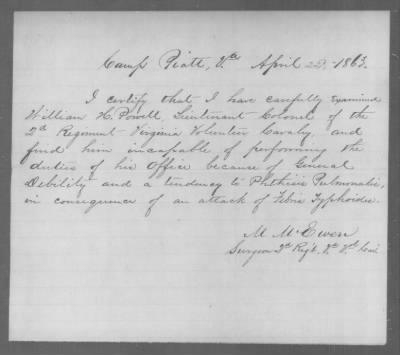 Camp Piatt, Va April 22, 1863.
I certify that I have carefully examined
William H. Powell, Lieutenant Colonel of the
2d Regiment Virginia Volunteer Cavalry, and
find him incapable of performing the
duties of his Office because of General
Debility and a tendency to Phthisis Pulmonalis,
in consequence of an attack of Febris Typhoides.
M McEwen
Surgeon 2d Regt. Va Vol Cav